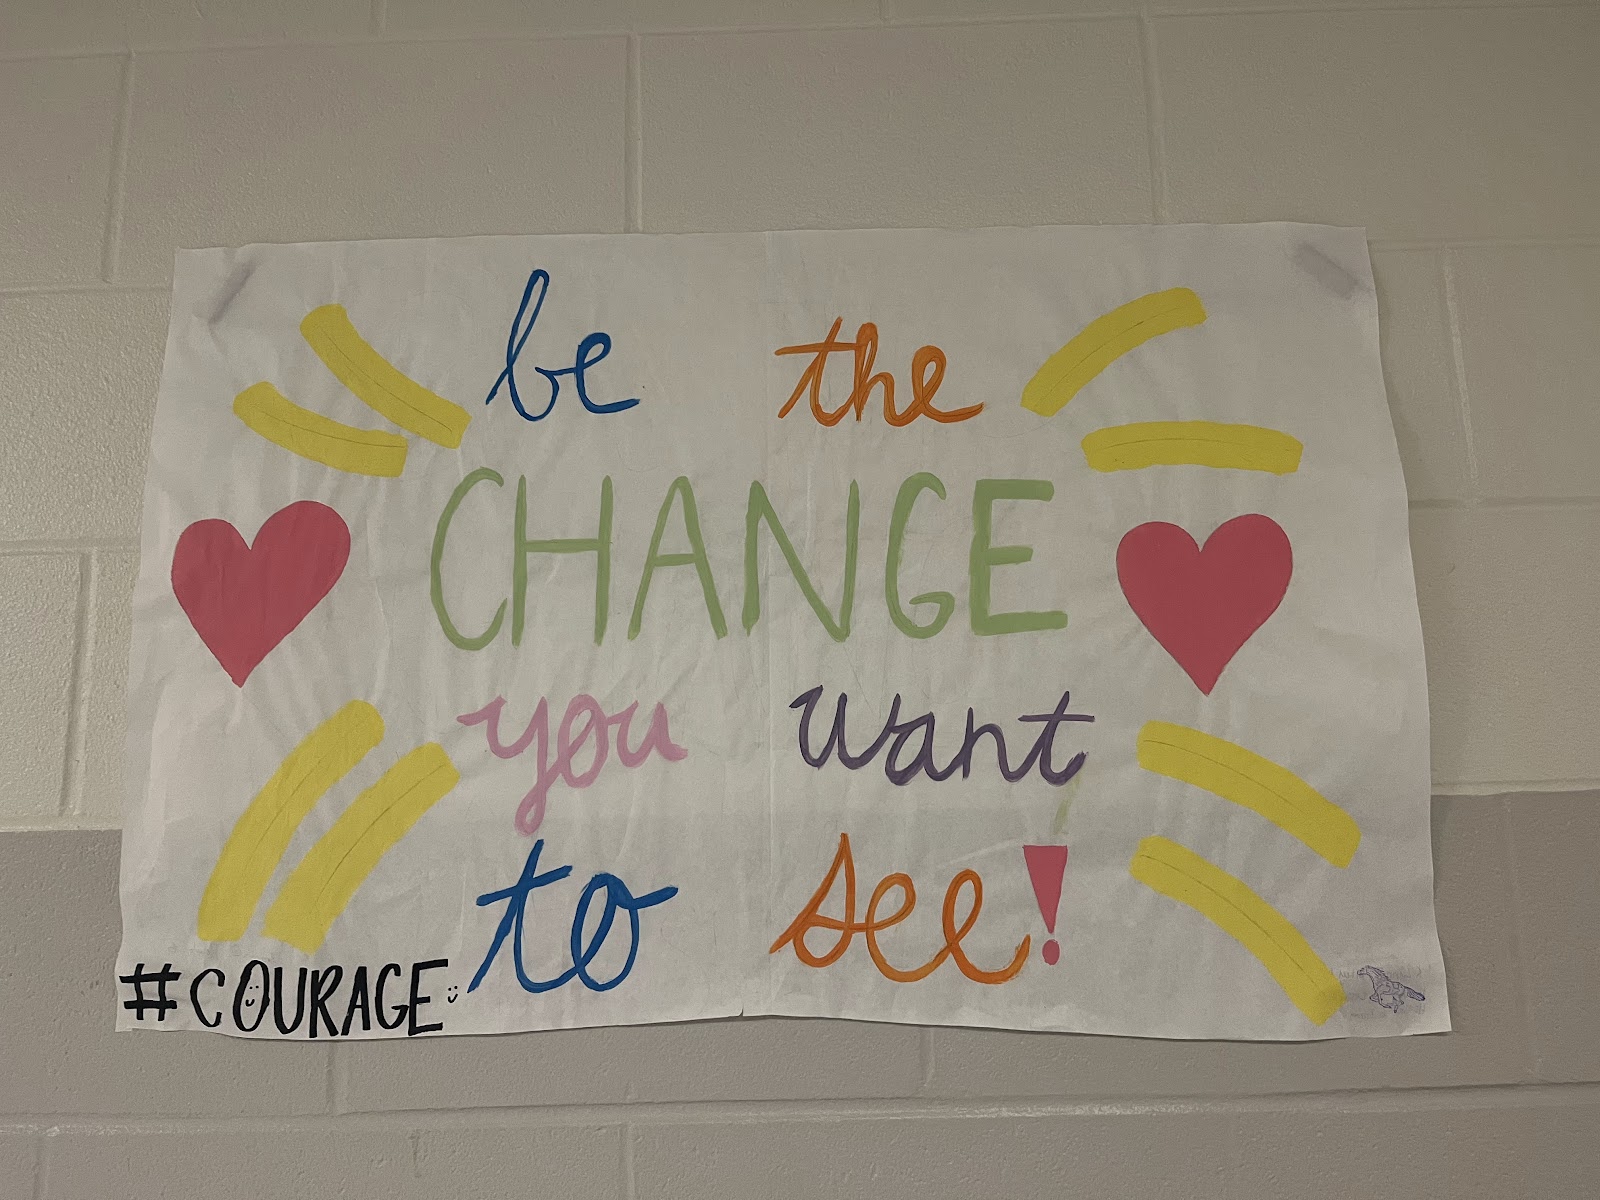 be the
CHANGE
you want
to see!
#COURAGE